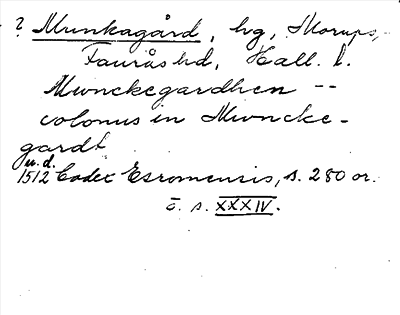 ? Munkagård, hg, Morups,
Faurås hd, Hall. l.
Mwnckegardhen --
colonus in Mwncke-
gardt
u.d.
1512 Codex Esromensis, s. 280 or.
s. XXXIV.